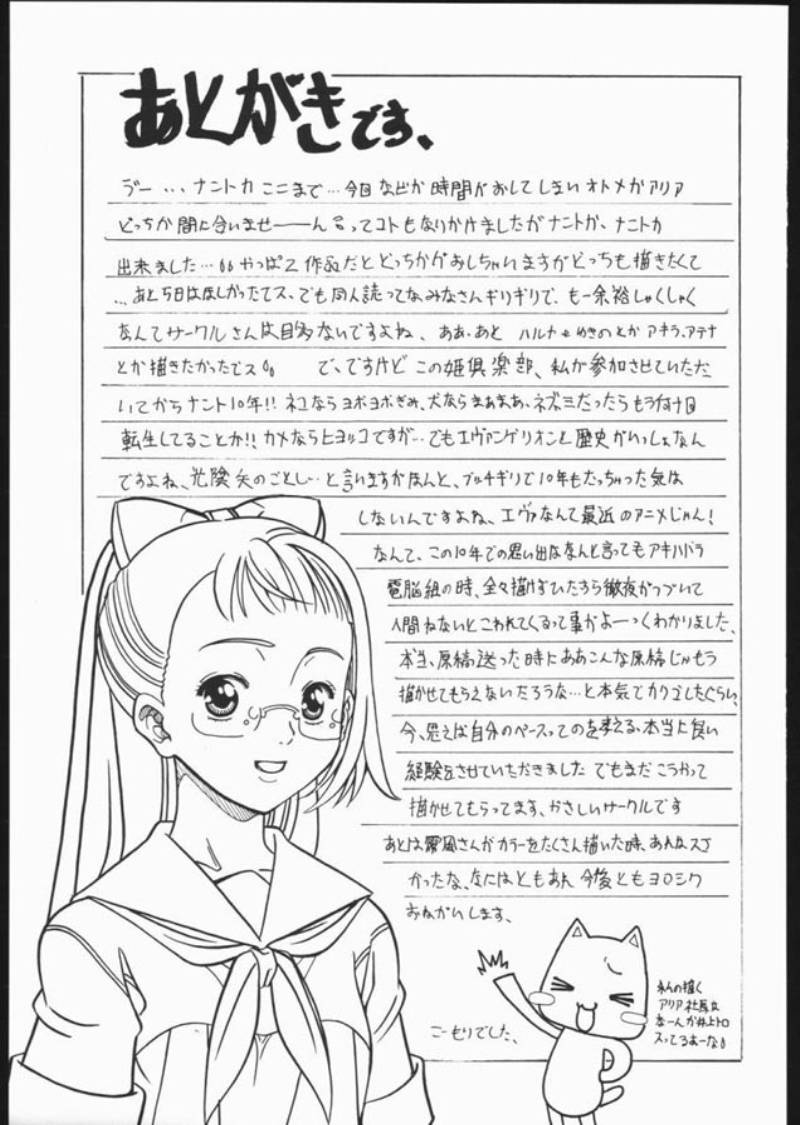 あとがきです、
うー…、ナントカここまで…今回などか時間がおしてしまいオトメかアリア
どっちか間に合いませーーん言ってコトもなりかけましたがナントか、ナントカ
出来ました…。やっぱ2作品だとどっちかがおしちゃいますがどっちも描きたくて
…あと5日はほしかったでス、でも同人誌ってなみなさんギリギリで、も一余裕しゃくしゃく
なんてサークルさんは目多ないですよね、ああ、あと ハルナやゆきのとか アキラ、アテナ
とか描きたかったでス。 で、ですけど この姫倶楽部、私が参加させていただ
いてからナント10年!! ネコならヨボヨボぎみ、犬ならまぁまぁ、ネズミだったらもう何回
転生してることか!! カメならヒヨッコですが…でもエヴァンゲリオンと歴史がいっしょなん
ですよね、光陰矢のごとし…と言いますがほんと、ブッチギリで10年もたっちゃった気は
しないんですよね、エヴァなんて最近のアニメじゃん!
なんて、この10年での思い出はなんと言ってもアキハバラ
電脳組の時、全々描けずひたすら徹夜がつづいて
人間ねないとこわれてくるって事がよーっくわかりました、
本当、原稿送った時にああこんな原稿じゃもう
描かせてもらえないだろうな…と本気でカクゴしたぐらい、
今、思えば自分のペースってのを考える、本当に良い
経験をさせていただきました でもまだこうやって
描かせてもらってます、やさしいサークルです
あとは さんがカラーをたくさん描いた時、あんなスゴ
かったな、なにはともあれ 今後ともヨロシク
おねがいします、
こーモリでした、
オレの描く
アリア社長は
なーんか井上トロ
スってるなーな。